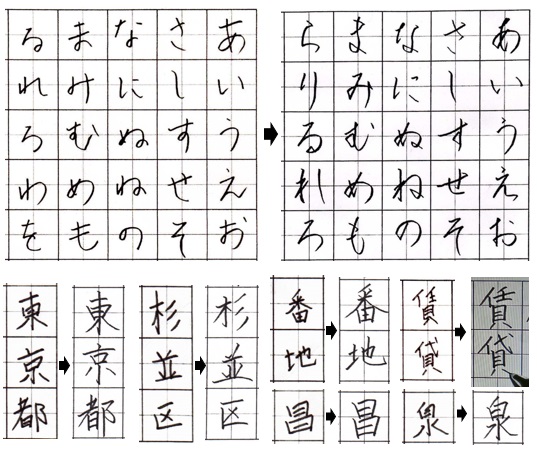 あいうえお
さしすせそ
なにぬねの
まみむめも
るれろわを
あいうえお
さしすせそ
なにぬねの
まみむめも
らりるれろ
東京都
東京都
杉並区
杉並区
番地
番地
賃貸
賃貸
昌
昌
泉
泉